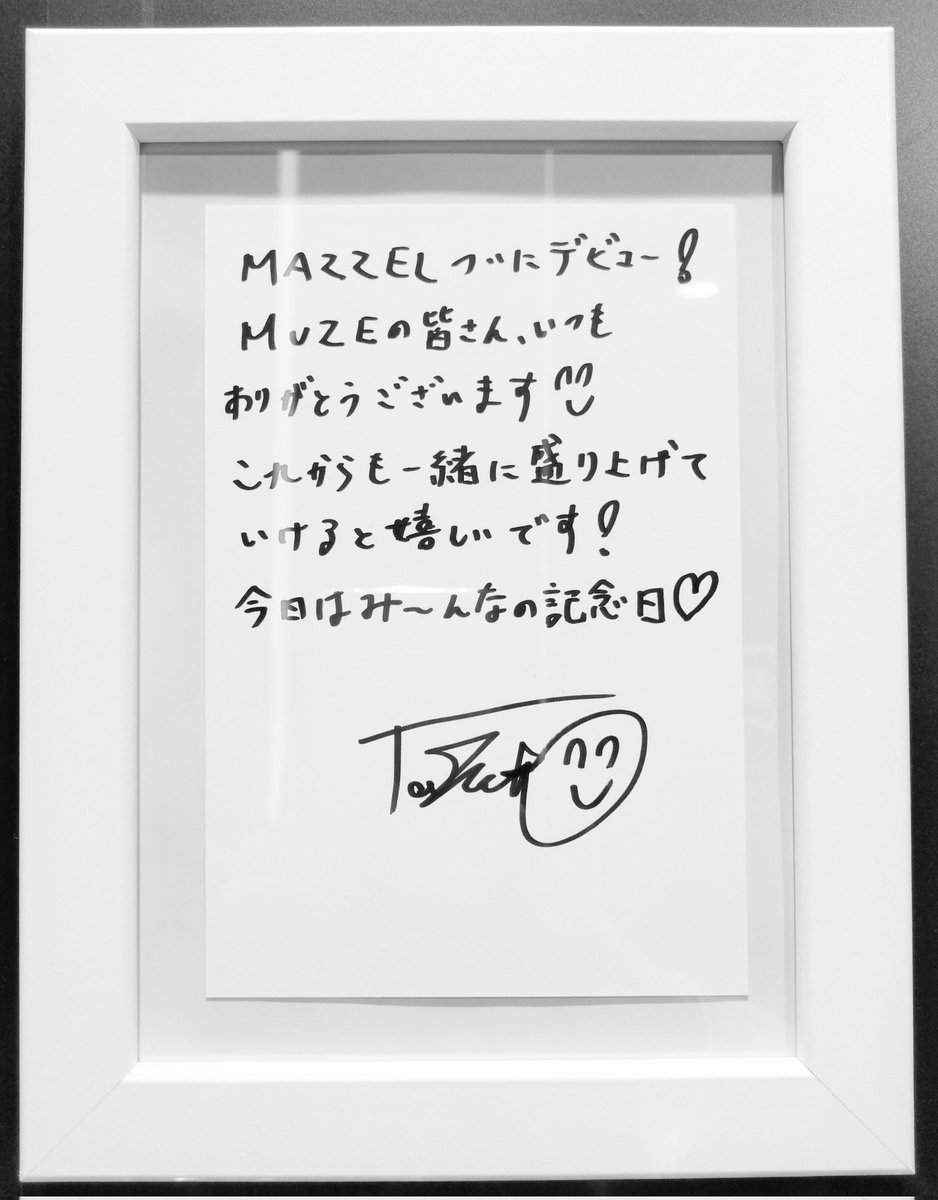 MAZZEL づいにデビュー!
MUZEの皆さん、いつも
ありがとうございます
これからも一緒に盛り上げて
いけると嬉しいです!
今日はみ〜んなの記念日♡